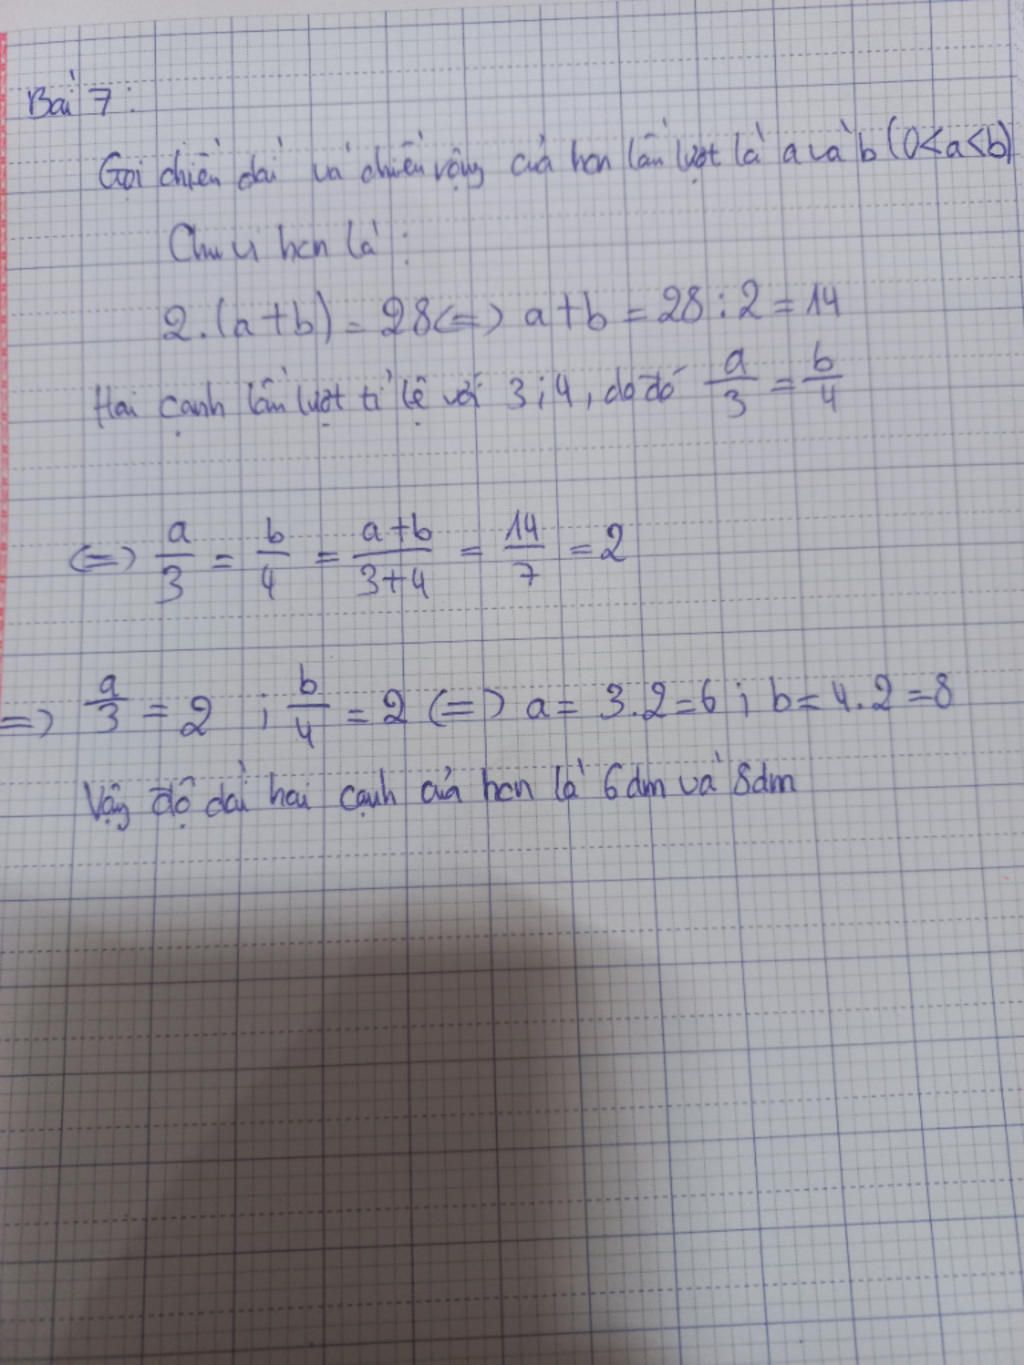 Bài 7:
Gọi chiều dài và chiều rộng của hcn lần lượt là a và b (0<a<b)
Chu vi hcn là:
2.(a+b) = 28 <=> a+b = 28:2 = 14
Hai cạnh lần lượt tỉ lệ với 3;4, do đó a/3 = b/4
<=> a/3 = b/4 = a+b/3+4 = 14/7 = 2
=> a/3 = 2 ; b/4 = 2 <=> a = 3.2=6 ; b= 4.2=8
Vậy độ dài hai cạnh của hcn là 6dm và 8dm